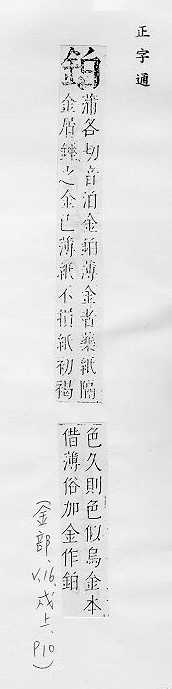 正字通
鉑
蒲各切音泊金鉑薄金者藥紙隔
金屑錘之金已薄紙不損紙初褐
色久則色似烏金本
借薄俗加金作鉑
(金部、V.16、戌上、P10)